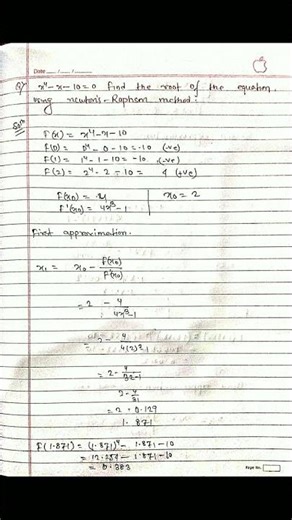 Date __/__/__
Q/ x⁴-x-10=0 find the root of the equation.
using newton's-Raphson method.
Solⁿ
F(x) = x⁴-x-10
F(0) = 0⁴-0-10=-10 (-ve)
F(1) = 1⁴-1-10=-10 (-ve)
F(2) = 2⁴-2-10= 4 (+ve)
F(x0) = 4 | x0=2
F'(x0) = 4x³-1
First approximation.
x1 = x0 - F(x0)/F'(x0)
= 2 - 4/4x³-1
= 2 - 4/4(2)³-1
= 2 - 4/32-1
2-4/31
= 2-0.129
1.871
F(1.871) = (1.871)⁴-1.871-10
= 12.254-1.871-10
= 0.383
Page No.